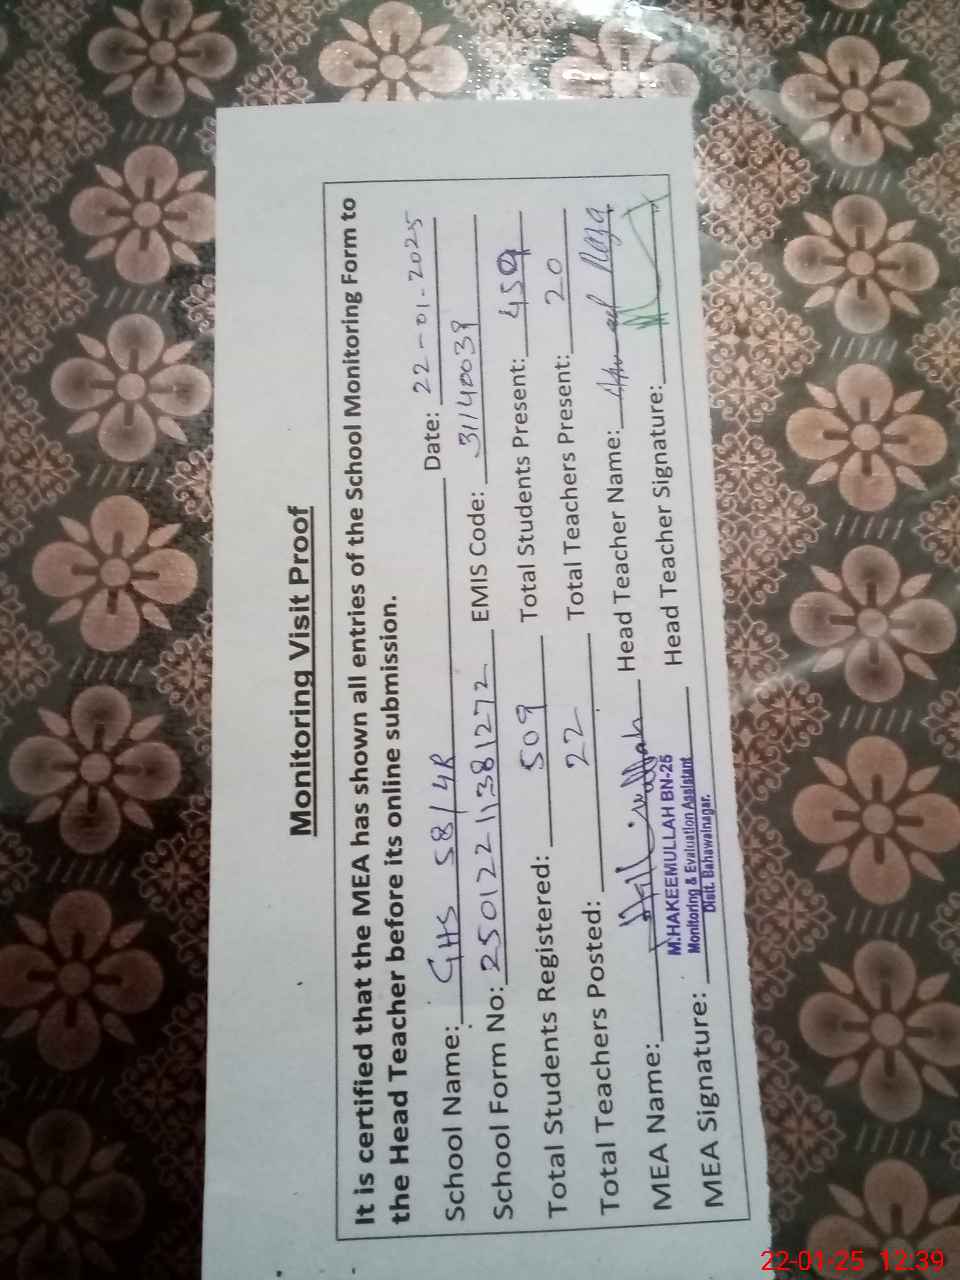 Monitoring Visit Proof
It is certified that the MEA has shown all entries of the School Monitoring Form to
the Head Teacher before its online submission.
School Name: GHS 58/4R Date: 22-01-2025
School Form No: 25012211381272 EMIS Code: 31140039
Total Students Registered: 509 Total Students Present: 459
Total Teachers Posted: 22 Total Teachers Present: 20
MEA Name: Head Teacher Name:
M.HAKEEMULLAH BN-25
Monitoring & Evaluation Assistant
Distt. Bahawalnagar.
MEA Signature: Head Teacher Signature:
22-01-25 12.39